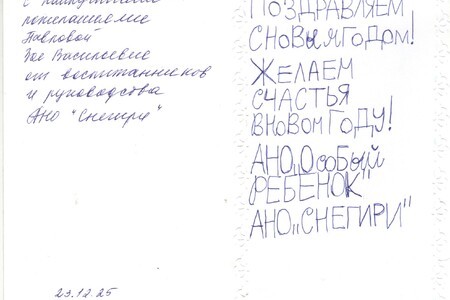 с наилучшими
пожеланиями
Павловой
Зое Васильевне
от воспитанников
и руководства
АНО "Снегири"
23.12.25
ПОЗДРАВЛЯЕМ
С НОВЫМ ГОДОМ!
ЖЕЛАЕМ
СЧАСТЬЯ
В НОВОМ ГОДУ!
АНО „ОСОБЫЙ
РЕБЕНОК"
АНО „СНЕГИРИ"